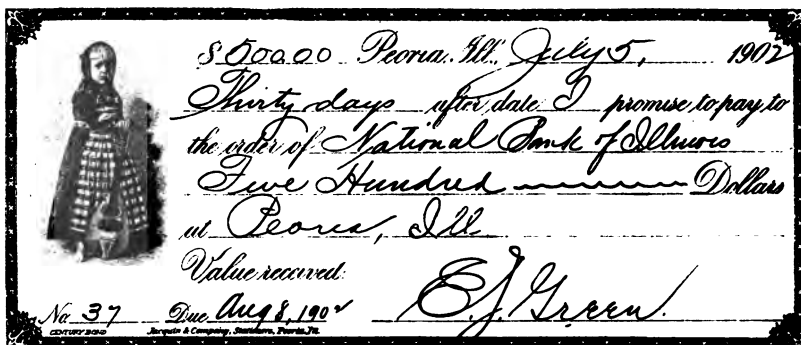 $500.00 Peoria, Ill., July 5, 1902
Thirty days after date I promise to pay to
the order of National Bank of Illinois
Five Hundred Dollars
at Peoria, Ill
Value received.
E. J. Green.
No. 37 Due Aug 8, 1902
CENTURY BOND Jacquin & Company, Stationers, Peoria, Ill.